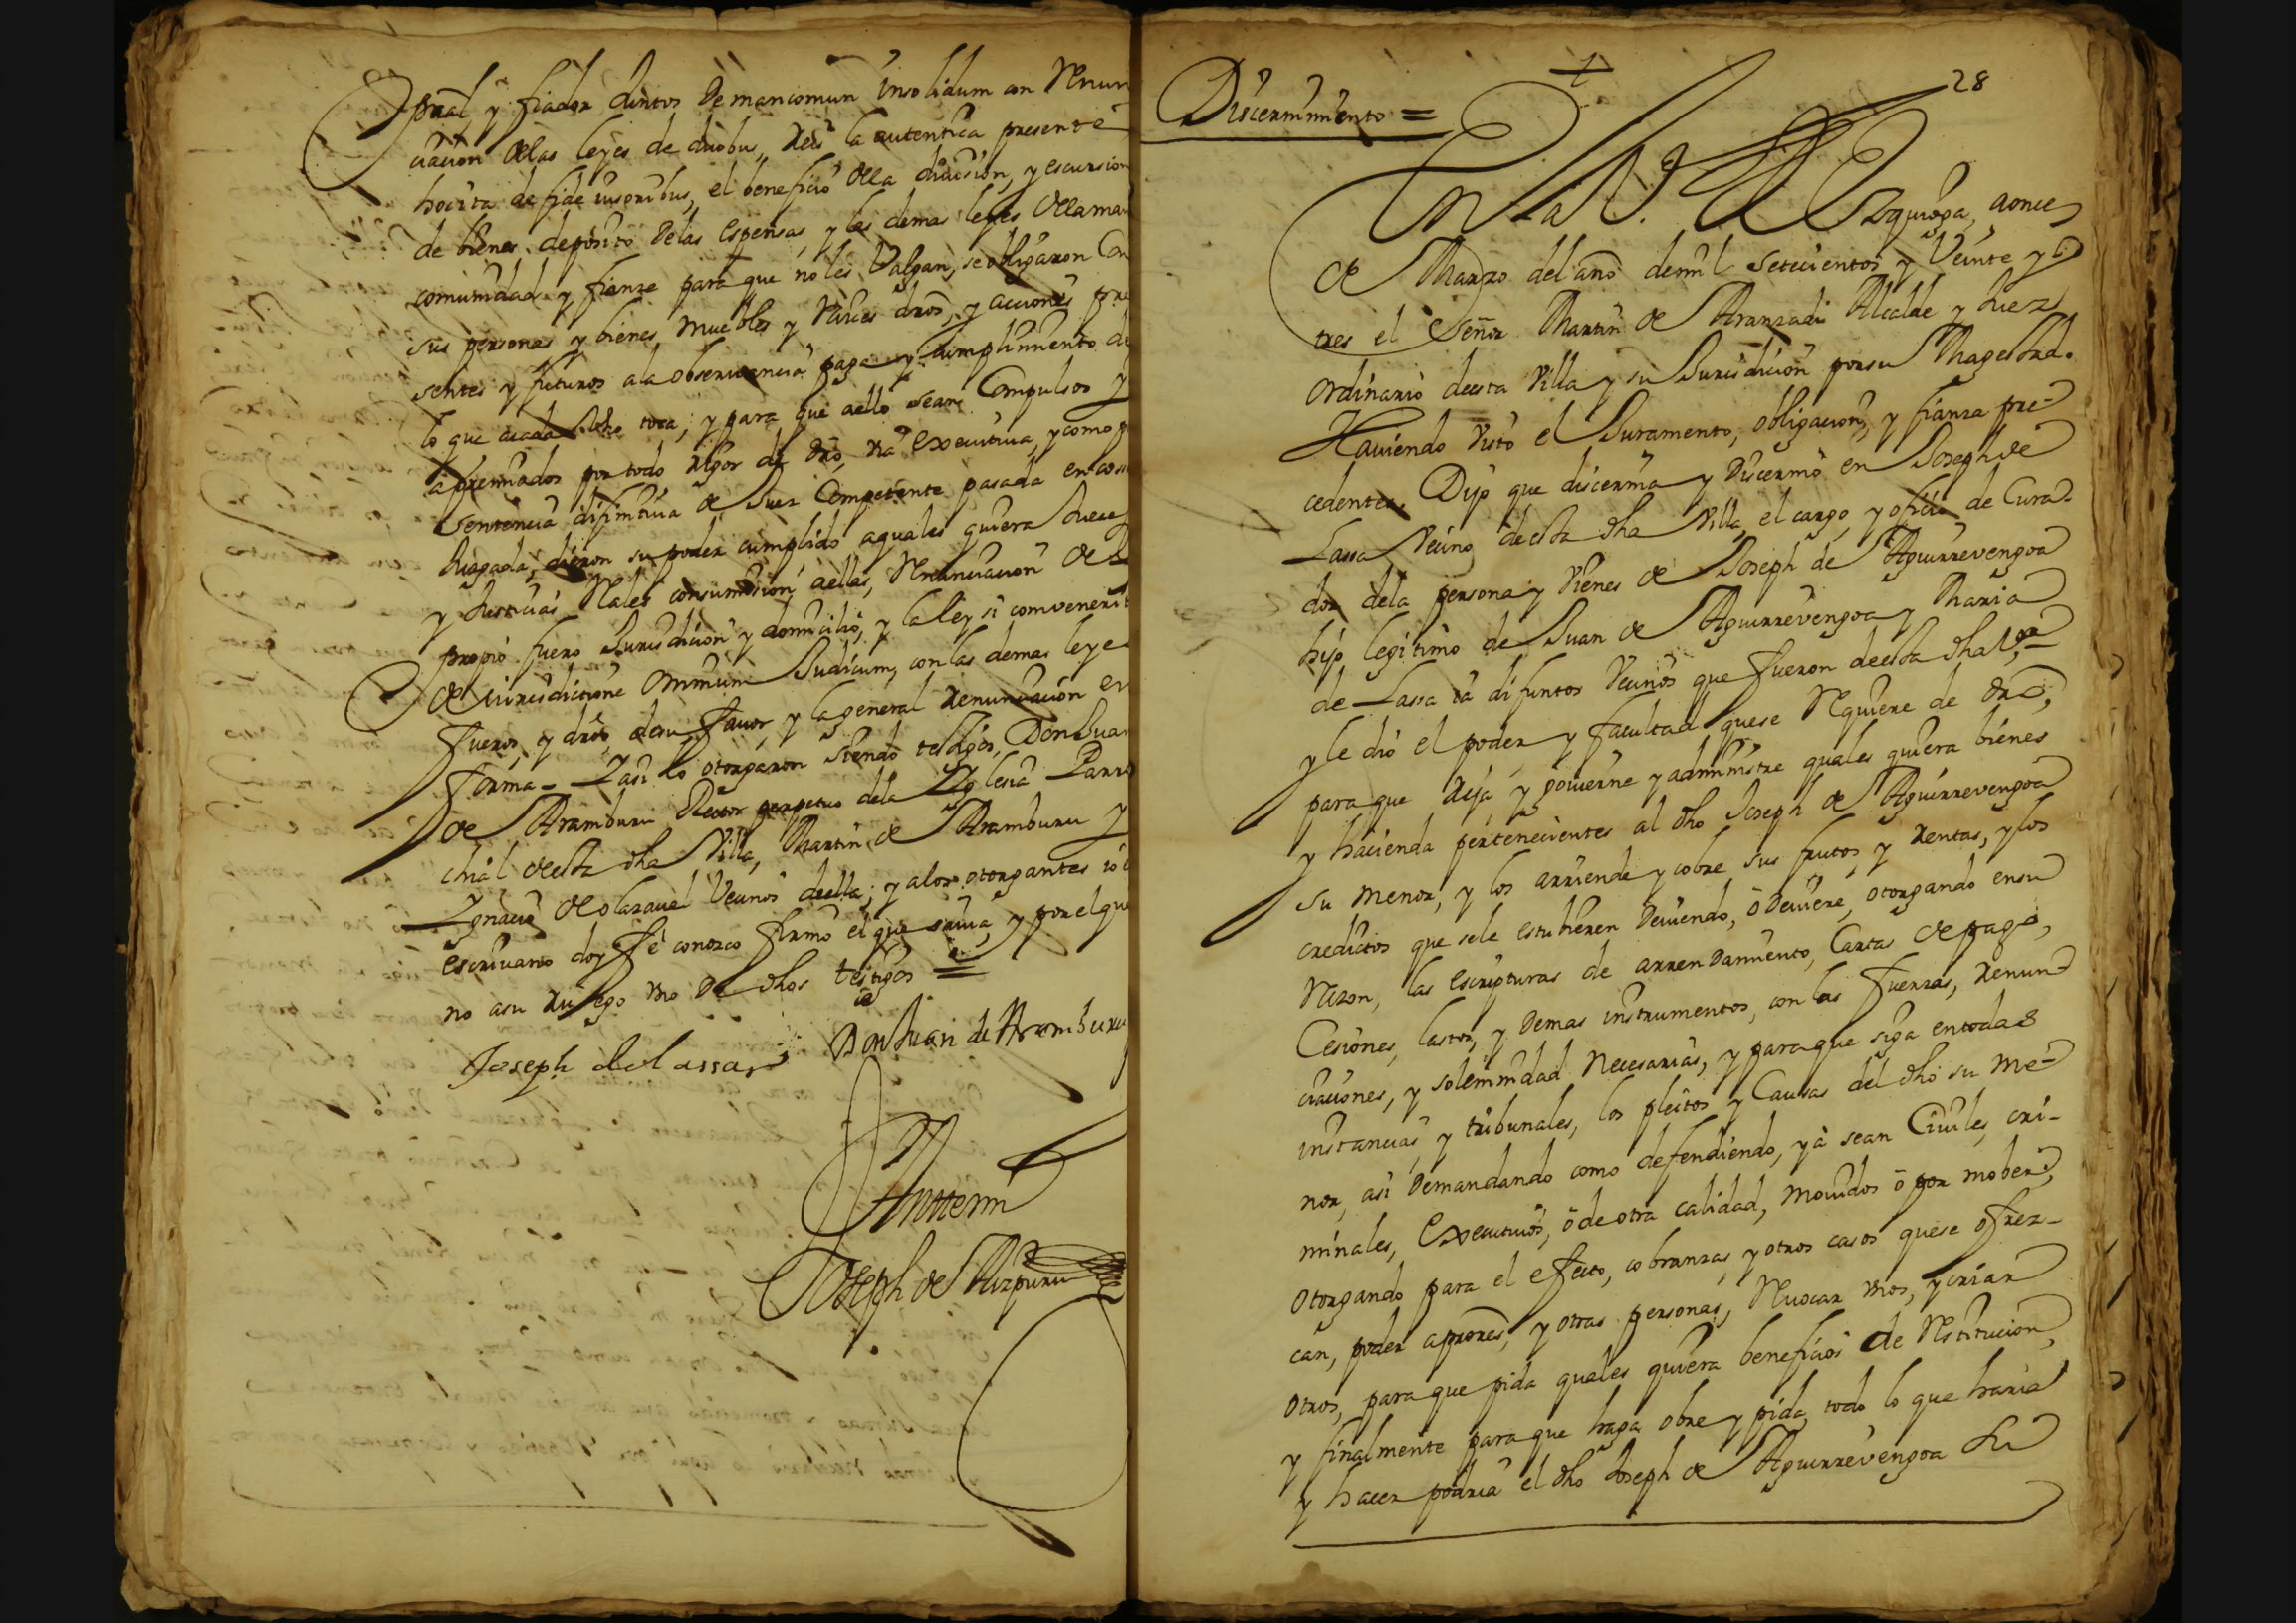 pral, y fiador dintos de mancomun insolidum con Renun
ciacion de las leyes de duobus Reis la autentica presente
hocita de fide iusoribus, el beneficio de la diuision, y escursion
de bienes, deposito de las espensas, y las demas leyes de la man
comunidad y fianza para que no les Valgan, se obligaron Con
sus personas y bienes muebles y Raices dros, y acciones pre
sentes y futuros a la observancia paga y cumplimiento de
lo que a cada dho toca; y para que a ello sean Compulsos y
apremiados por todo Rigor de dro, via executiua, y como p
Sentencia difinitiua de Juez Competente pasada en cosa
Juzgada, dieron su poder cumplido a quales quiera Jueces
y Justicias Rales con sumision a ellas, Renunciacion de su
propio fuero Jurisdicion y domicilio, y la ley si convenerit
de iurisdictione Omnium Judicum, con las demas leyes
fueros, y dros de su favor, y la general Renunciacion en
forma = Y asi lo otorgaron siendo testigos, Don Juan
de Aramburu Rector perpetuo de la Yglesia Parro
chial de esta dha Villa, Martin de Aramburu y
Ygnacio de Olazaual Vecinos de ella; y a los otorgantes io el
escriuano doy fe conozco firmo el que sauia, y por el que
no a su Ruego vno de dhos testigos =
Joseph de Lassa
Don Juan de Aramburu
Ante mi
Joseph de Aizpuru
28
Discernimiento =
En la V.ª de Azpeitia, a once
de Marzo del año de mil Setecientos y Veinte y
tres el Señor Martin de Aranzadi Alcalde y Juez
Ordinario de esta Villa y su Jurisdicion por su Magestad.
Hauiendo Visto el Juramento, obligacion, y fianza pre-
cedentes. Dijo que discernia y discernio en Joseph de
Lassa Vecino de esta dha Villa, el cargo, y oficio de Cura-
dor de la persona y Vienes de Joseph de Aguirrevengoa
hijo legitimo de Juan de Aguirrevengoa y Maria
de Lassa ia difuntos Vecinos que fueron de esta dha V.ª
y le dió el poder y facultad que se Requiere de dro,
para que Rija y gouierne y administre quales quiera bienes
y hacienda pertenecientes al dho Joseph de Aguirrevengoa
su menor, y los arriende y cobre sus frutos, y Rentas, y los
creditos que se le estubieren deuiendo, ò deuiere, otorgando en su
Razon, las escripturas de arrendamiento, Cartas de pago,
Cesiones, lastos, y demas instrumentos, con las fuerzas, Renun-
ciaciones, y solemnidad Necesarias, y para que siga en todas
instancias y tribunales, los pleitos y Causas del dho su me-
nor, asi demandando como defendiendo, yà sean Ciuiles, cri-
minales, Executiuos, ò de otra calidad, mouidos ò por mober,
Otorgando para el efecto, cobranzas, y otros casos que se ofrez-
can, poder a prores, y otras personas, Reuocar vnos, y criar
otros, para que pida quales quiera beneficios de Restitucion,
y finalmente para que haga obre y pida, todo lo que haria
y hacer podria el dho Joseph de Aguirrevengoa Su